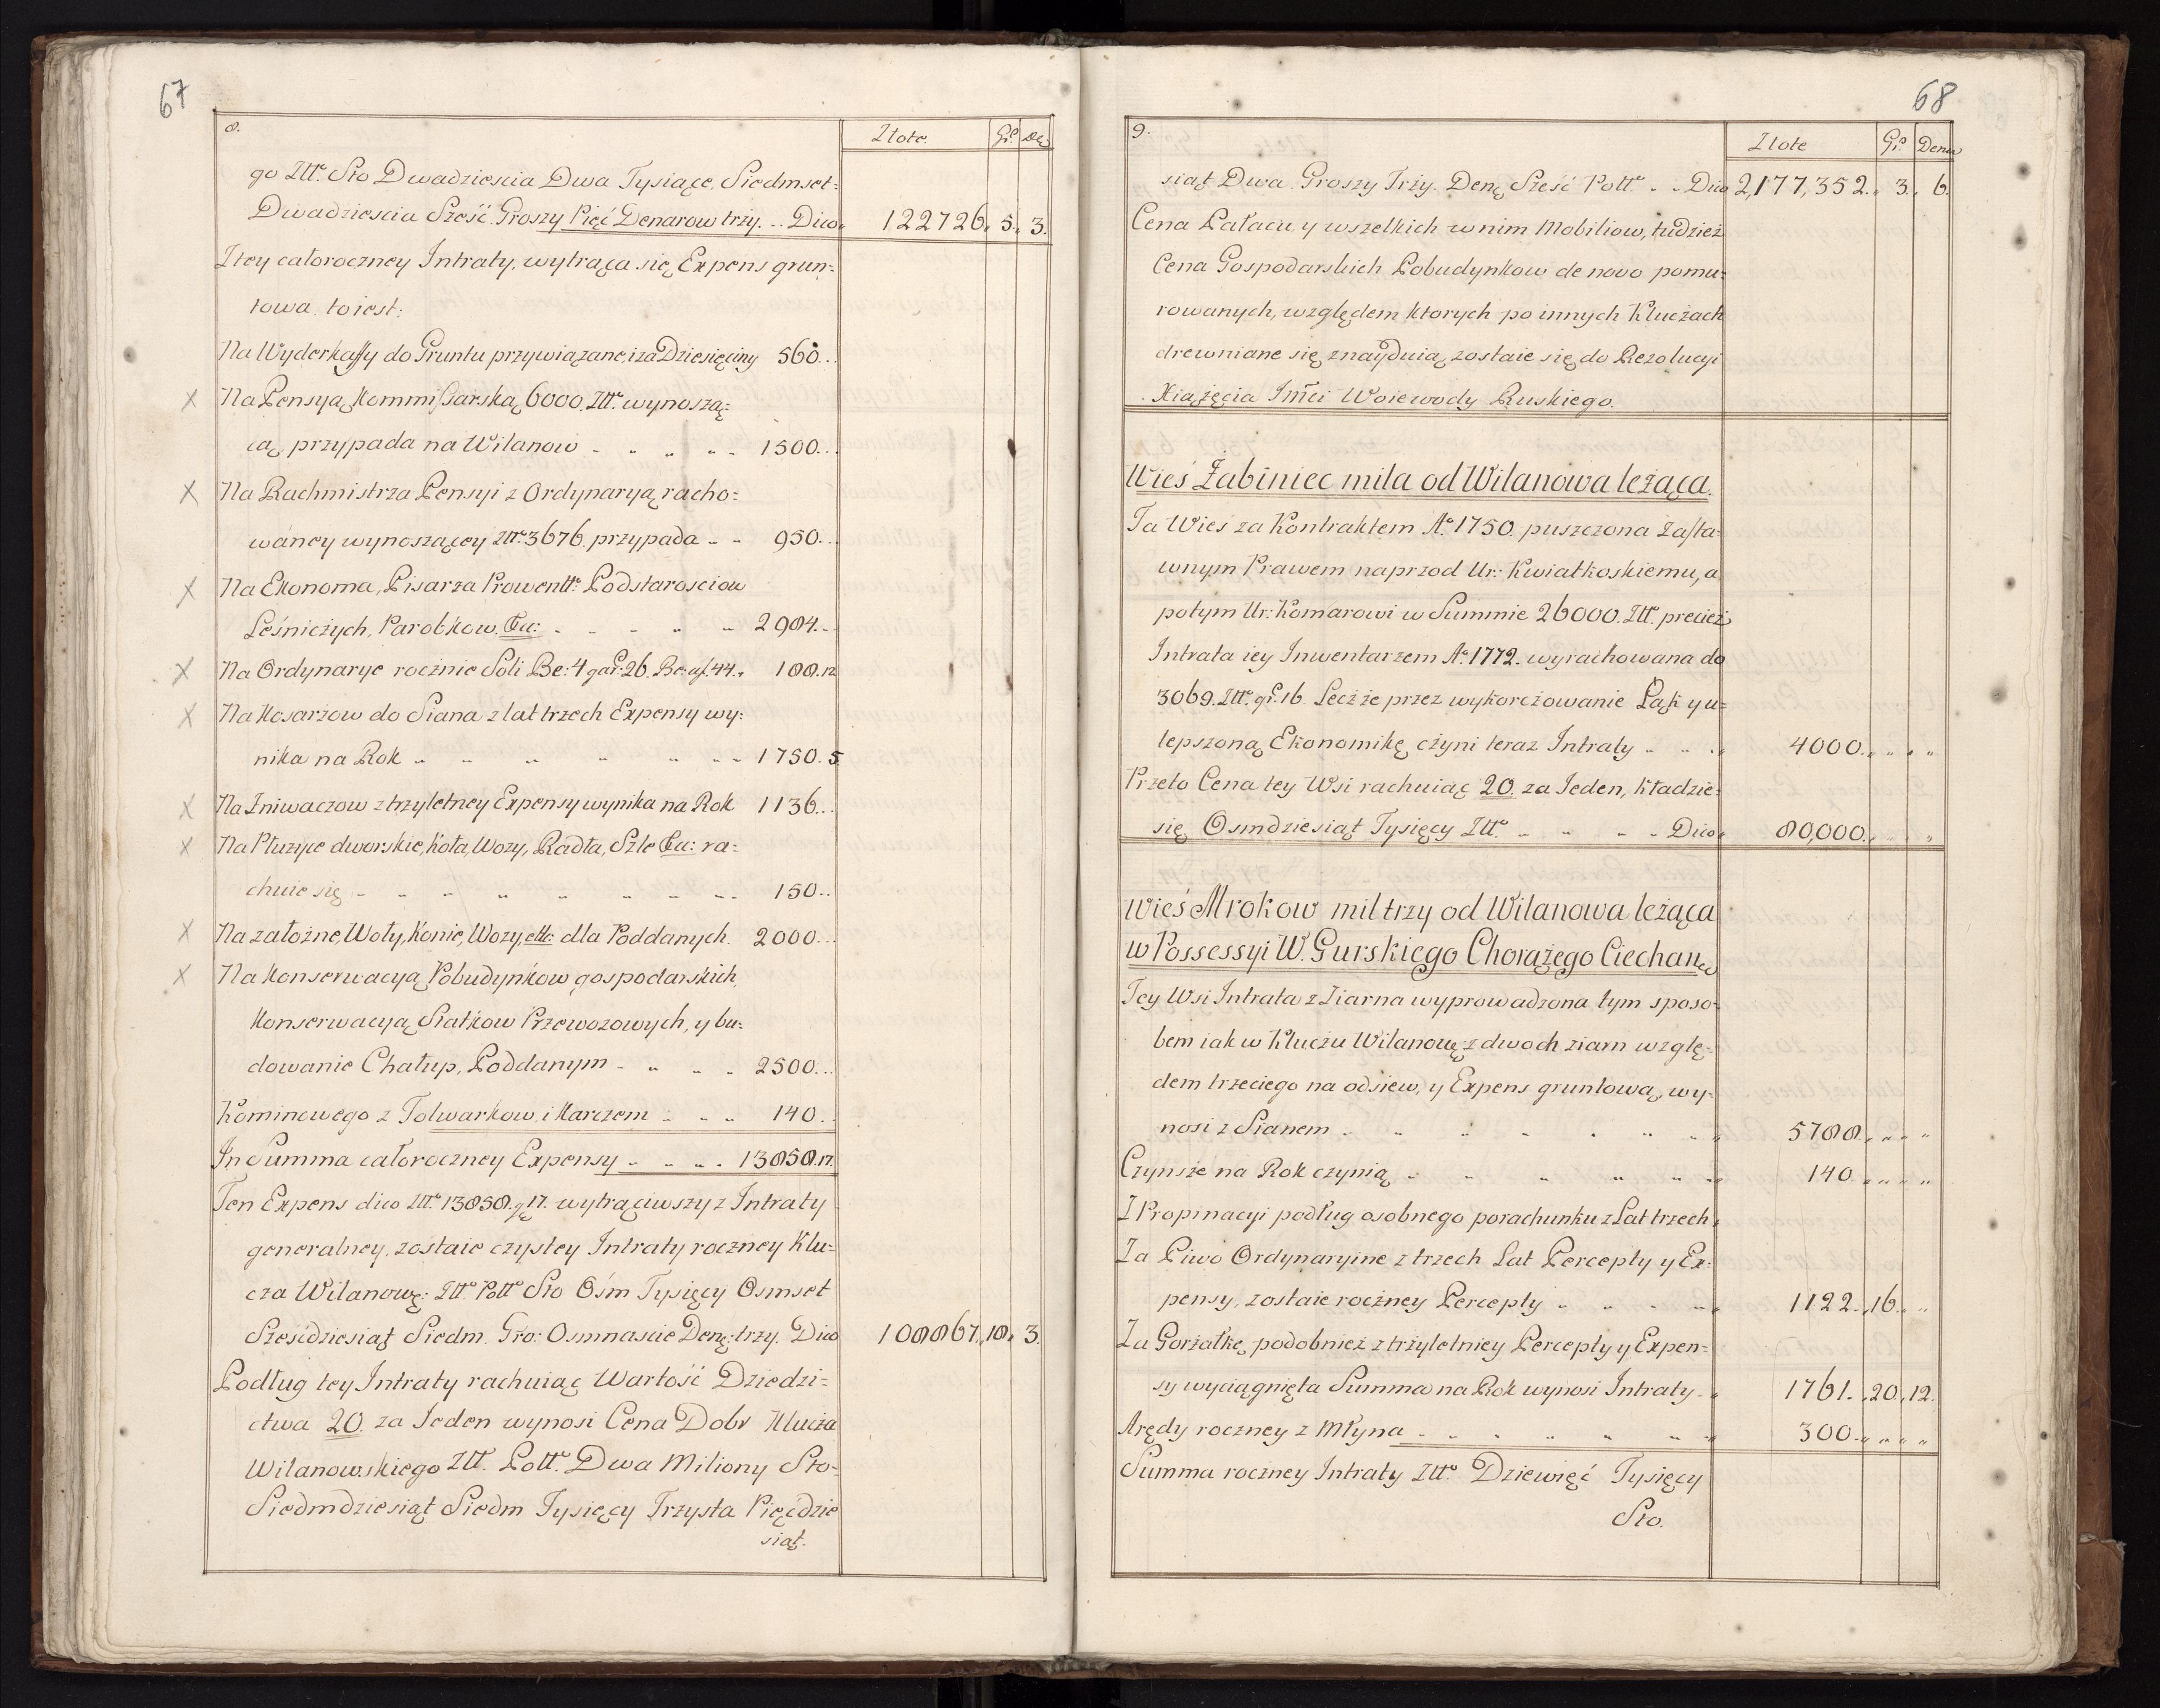 67
8.
Złote. Gr. De
go Złł. Sto Dwadziescia Dwa Tysiące, Siedmset=
Dwadziescia Sześć. Groszy Pięć Denarow trzy. .. Dico. 122726. 5. 3.
Z tey całoroczney Intraty, wytrąca się Expens grun=
towa. to iest:
Na Wyderkaffy do Gruntu przywiązane, i za Dziesięciny 560...
Na Pensyą Kommissarską 6000. Złł. wynoszą=
cą, przypada na Wilanow - .. .. .. - 1500...
Na Rachmistrza Pensyi z Ordynaryą racho=
wáney wynoszącey Złł. 3676. przypada - - 950...
Na Ekonoma, Pisarza Prowentt: Podstarosciow
Leśniczych, Parobkow, &c: - - - .. - 2984...
Na Ordynarye rocznie Soli Be: 4 gar: 26. Be: a f. 44. 188. 12
Na Kosarzow do Siana z lat trzech Expensy wy=
nika na Rok .. - .. .. .. - - 1750. 5.
Na Zniwaczow z trzyletney Expensy wynika na Rok 1136...
Na Płużyce dworskie, Koła, Wozy, Radła, Szle &c: ra=
chuie się - .. .. .. .. .. - - 150..
Na załozne, Woły, Konie, Wozy, ett: dla Poddanych. 2000...
Na Konserwacyą Pobudynkow gospodarskich,
Konserwacyą Statkow Przewozowych, y bu=
dowanie Chałup, Poddanym - .. .. . 2500...
Kominowego z Folwarkow, i Karczem - .. .. 140..
In Summa całoroczney Expensy - .. .. . 13858. 17.
Ten Expens dico Złł. 13858. g 17. wytrąciwszy z Intraty
generalney, zostaie czystey Intraty roczney Klu=
cza Wilanowę: Złł. Poll. Sto Ośm Tysięcy Osmset
Szesćdziesiąt Siedm. Gro: Osmnascie Denę: trzy. Dico 108867. 18. 3.
Podług tey Intraty rachuiąc Wartość Dziedzi=
ctwa 20. za Ieden wynosi Cena Dobr Klucza
Wilanowskiego Złł. Poll. Dwa Miliony Sto=
Siedmdziesiąt Siedm Tysięcy Trzysta Pięćdzie
siąt.
68
9.
Złote Gr. Dena
siąt Dwa. Groszy Trzy. Denę Sześć Poll. .. Dico 2,177,352. 3. 6.
Cena Pałacu, y wszelkich w nim Mobiliow, tudzież
Cena Gospodarskich Pobudynkow de novo pomu=
rowanych, względem ktorych po innych Kluczach
drewniane się znayduią, zostaie się do Rezolucyi
Xiążęcia Imci Woiewody Ruskiego.
Wieś Żabiniec mila od Wilanowa leżąca.
Ta Wieś za Kontraktem Ao. 1750. puszczona Zasta=
wnym Prawem naprzod Ur: Kwiatkoskiemu, a
potym Ur: Komarowi w Summie 26000. Złł. przecież
Intrata iey Inwentarzem Ao. 1772. wyrachowana do
3069. Złł. gr. 16. Lecz że przez wykorczowanie Łąk y u=
lepszoną Ekonomikę czyni teraz Intraty - .. .. 4000. .. .. ..
Przeto Cena tey Wsi rachuiąc 20. za Ieden, kładzie=
się Osmdziesiąt Tysięcy Złł. - .. .. - Dico 80,000. .. .. ..
Wieś Mrokow mil trzy od Wilanowa leżąca
w Possessyi W. Gurskiego Chorążego Ciechanę
Tey Wsi Intrata z Ziarna wyprowadzona tym sposo=
bem iak w Kluczu Wilanowę: z dwoch ziarn wzglę=
dem trzeciego na odsiew, y Expens gruntową, wy=
nosi z Sianem - .. .. .. . .. .. 5788. .. .. ..
Czynsze na Rok czynią .. .. .. .. .. 140. .. .. ..
Z Propinacyi podług osobnego porachunku z Lat trzech,
Za Piwo Ordynaryine z trzech Lat Percepty y Ex=
pensy, zostaie roczney Percepty .. .. - .. 1122. 16. ..
Za Gorzałkę, podobnież z trzyletniey Percepty y Expen=
sy wyciągnięta Summa na Rok wynosi Intraty .. 1761. 20. 12.
Arędy roczney z Młyna - .. . .. .. .. .. 300. .. .. ..
Summa roczney Intraty Złł. Dziewięć Tysięcy
Sto.